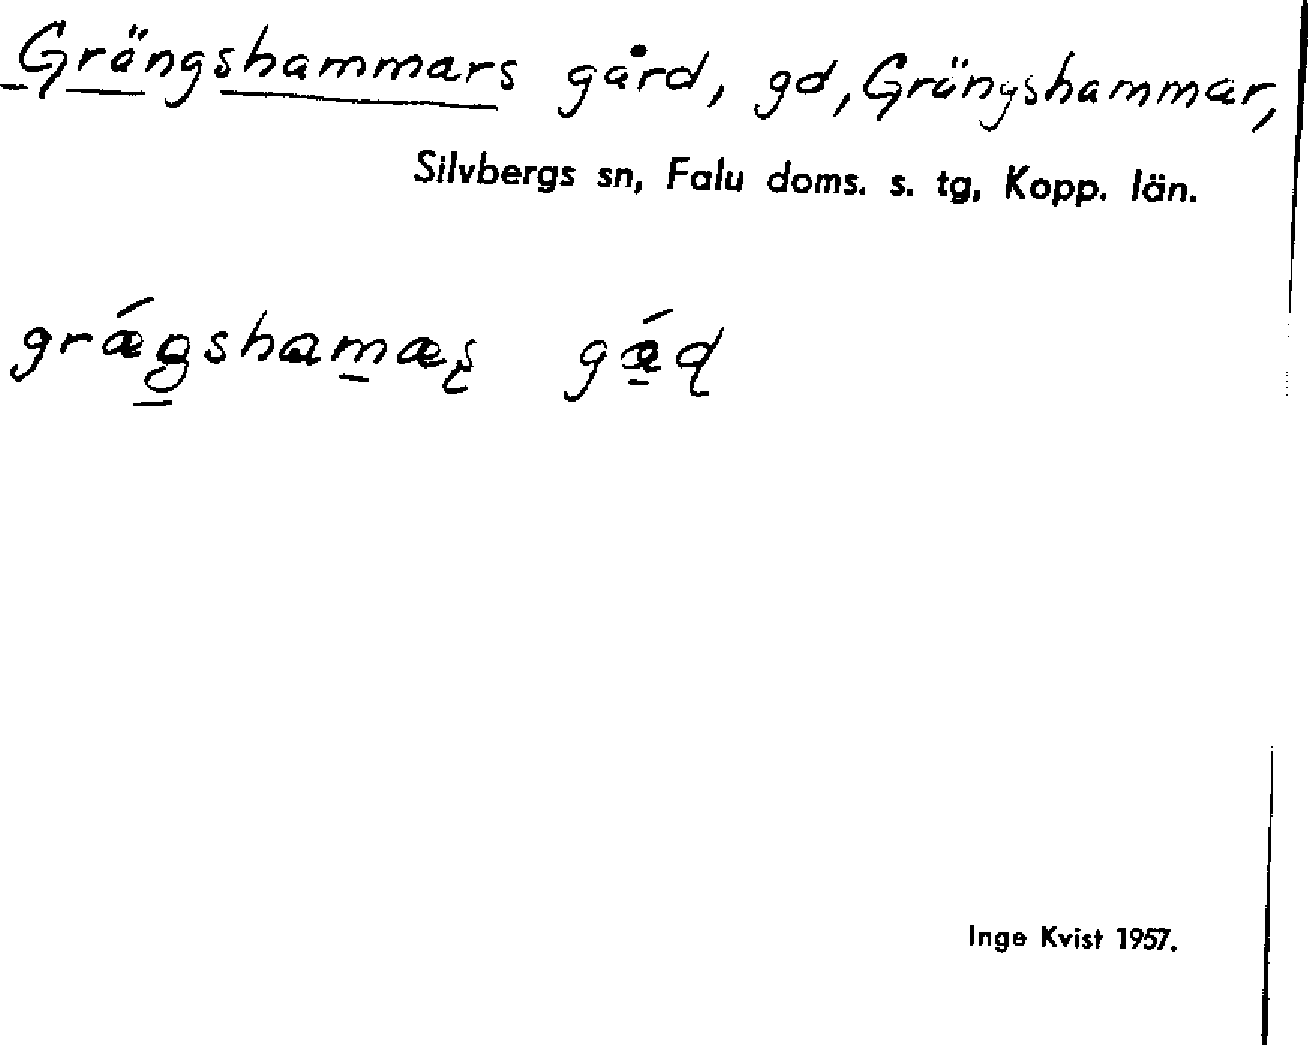 Grängshammars gård, gd, Grängshammar,
Silvbergs sn, Falu doms. s. tg, Kopp. län.
Inge Kvist 1957.